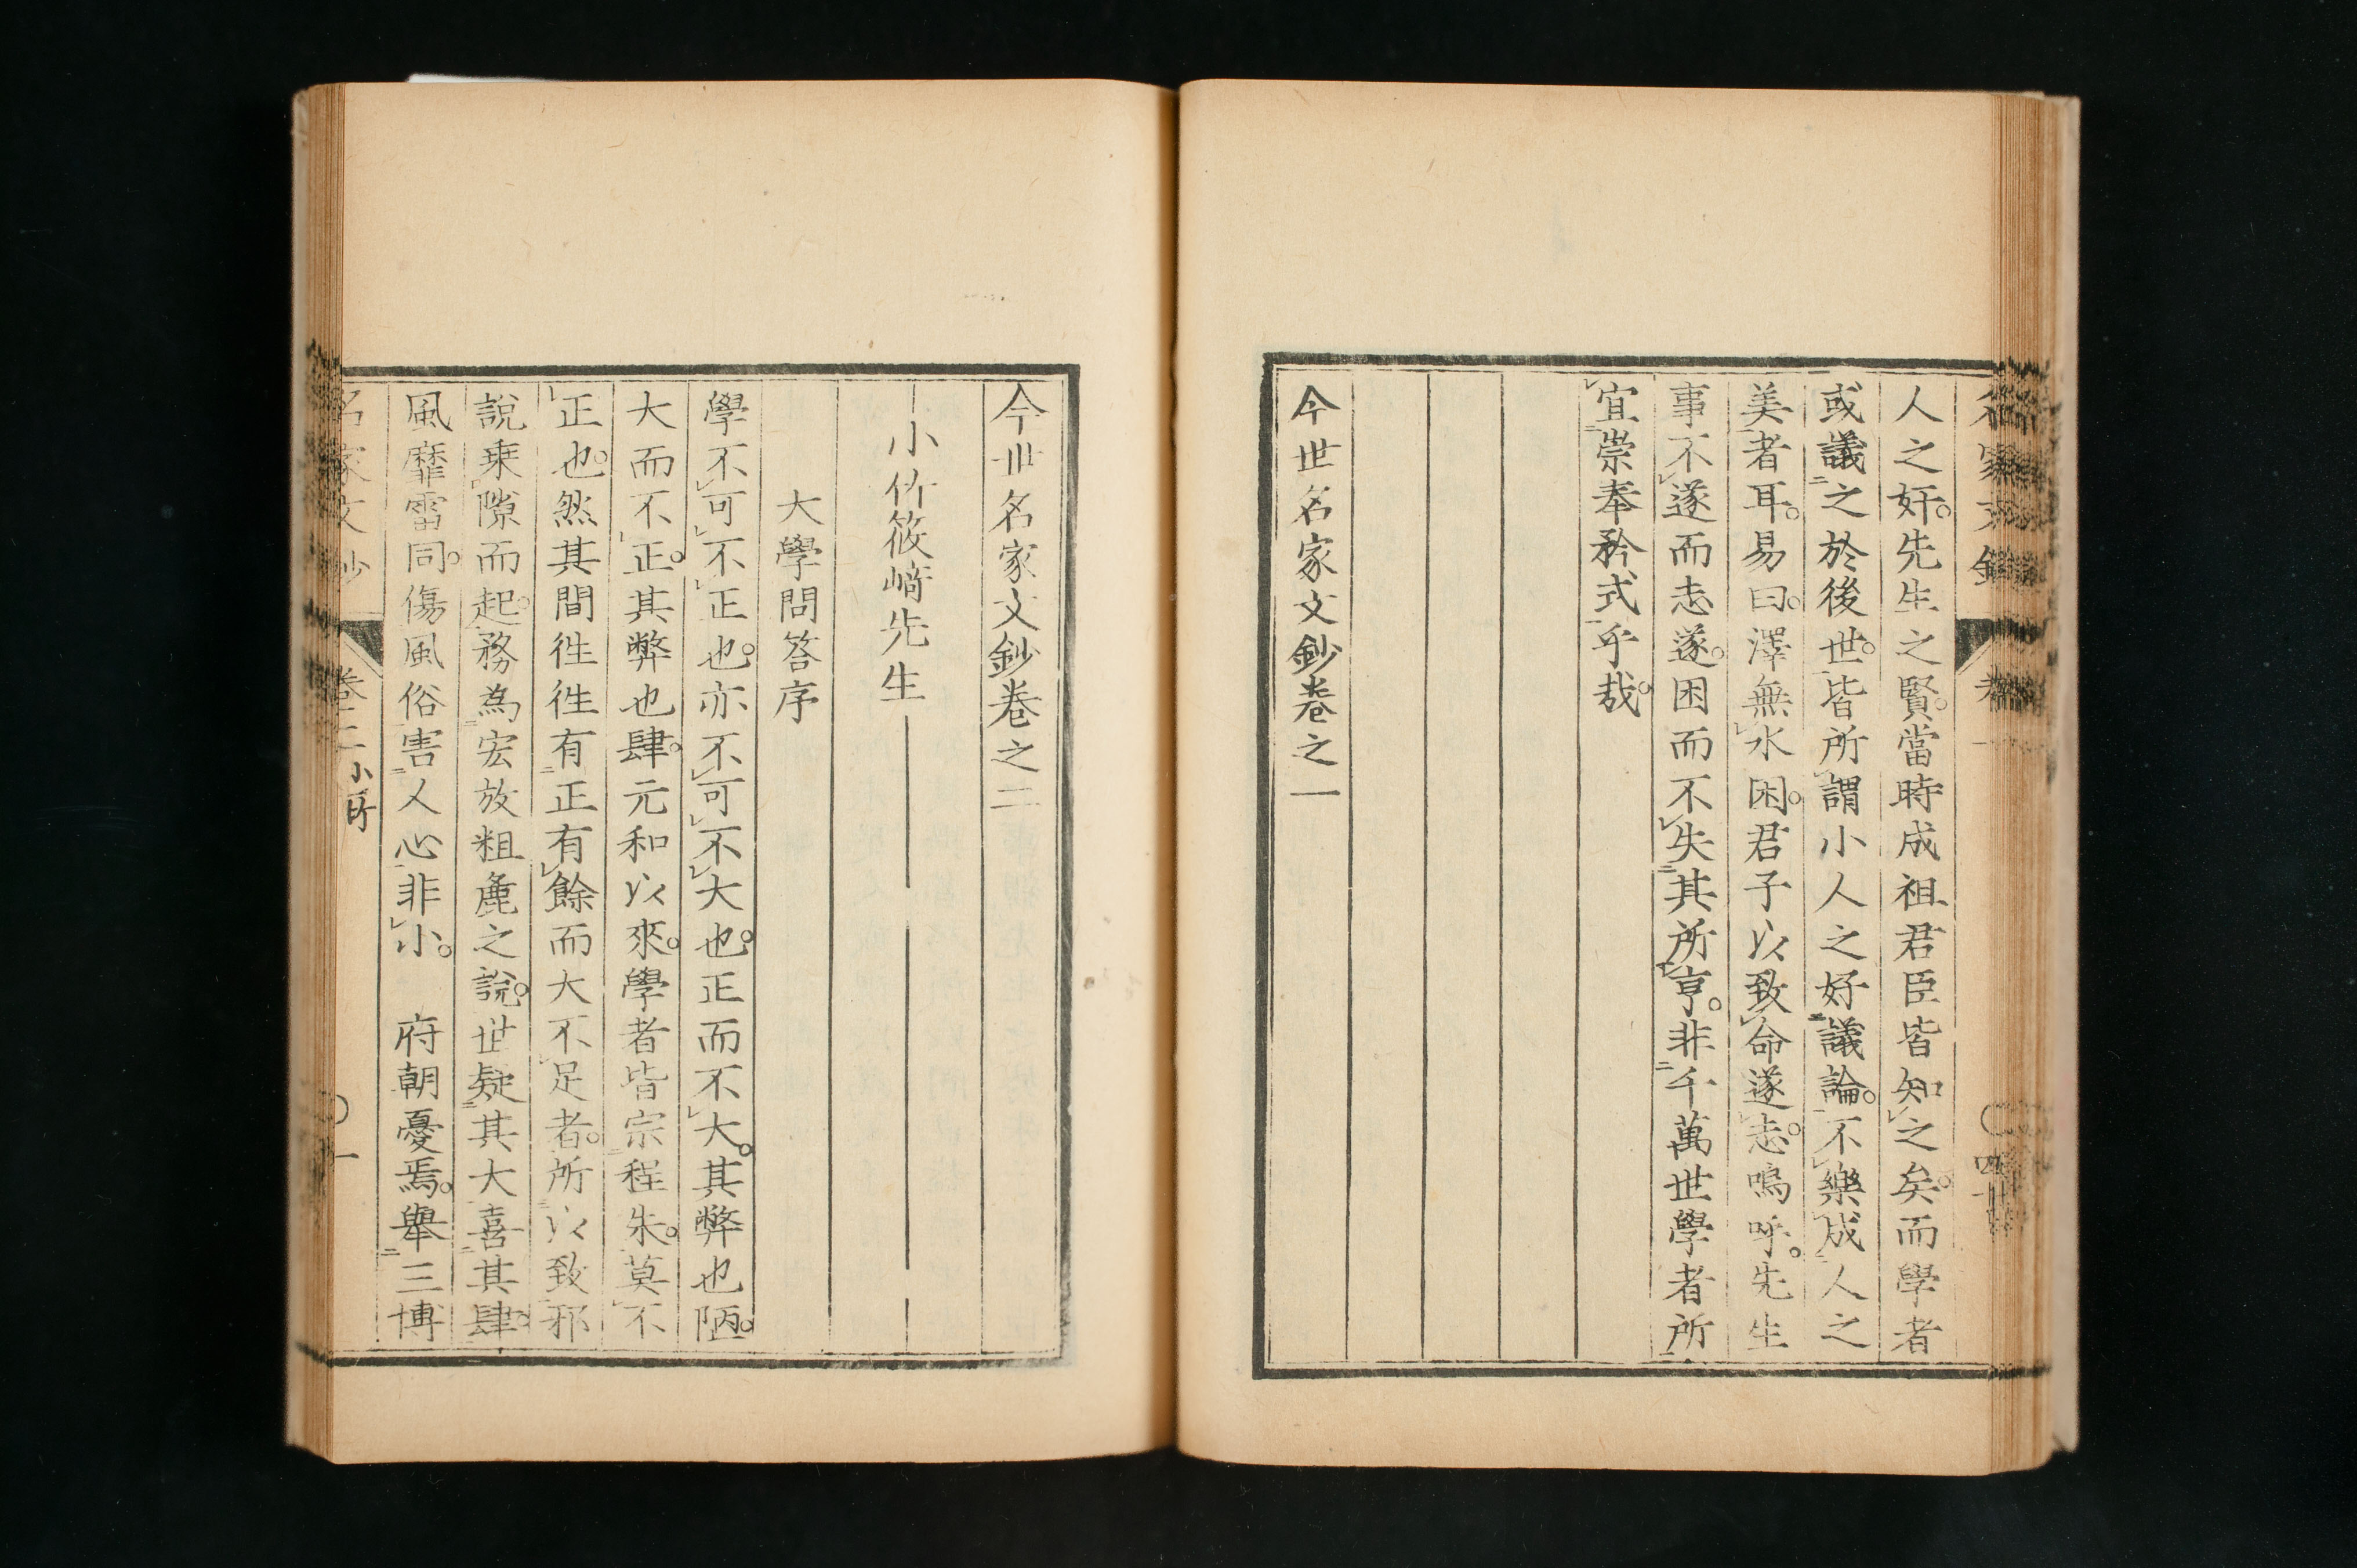 人之奸。先生之賢。當時成祖君臣皆知之矣。而學者
或議之於後世。皆所謂小人之好議論。不樂成人之
美者耳。易曰。澤無水困。君子以致命遂志。嗚呼。先生
事不遂而志遂。困而不失其所亨。非千萬世學者所
宜崇奉矜式乎哉。
今世名家文鈔卷之一
今世名家文鈔卷之二
小竹筱﨑先生
大學問答序
學不可不正也。亦不可不大也。正而不大。其弊也陋。
大而不正。其弊也肆。元和以來。學者皆宗程朱。莫不
正也。然其間徃徃有正有餘而大不足者。所以致邪
說乗隙而起。務為宏放粗麁之說。世疑其大喜其肆。
風靡雷同。傷風俗害人心非小。 府朝憂焉。舉三博
名家文鈔 卷二 小竹 〇 一